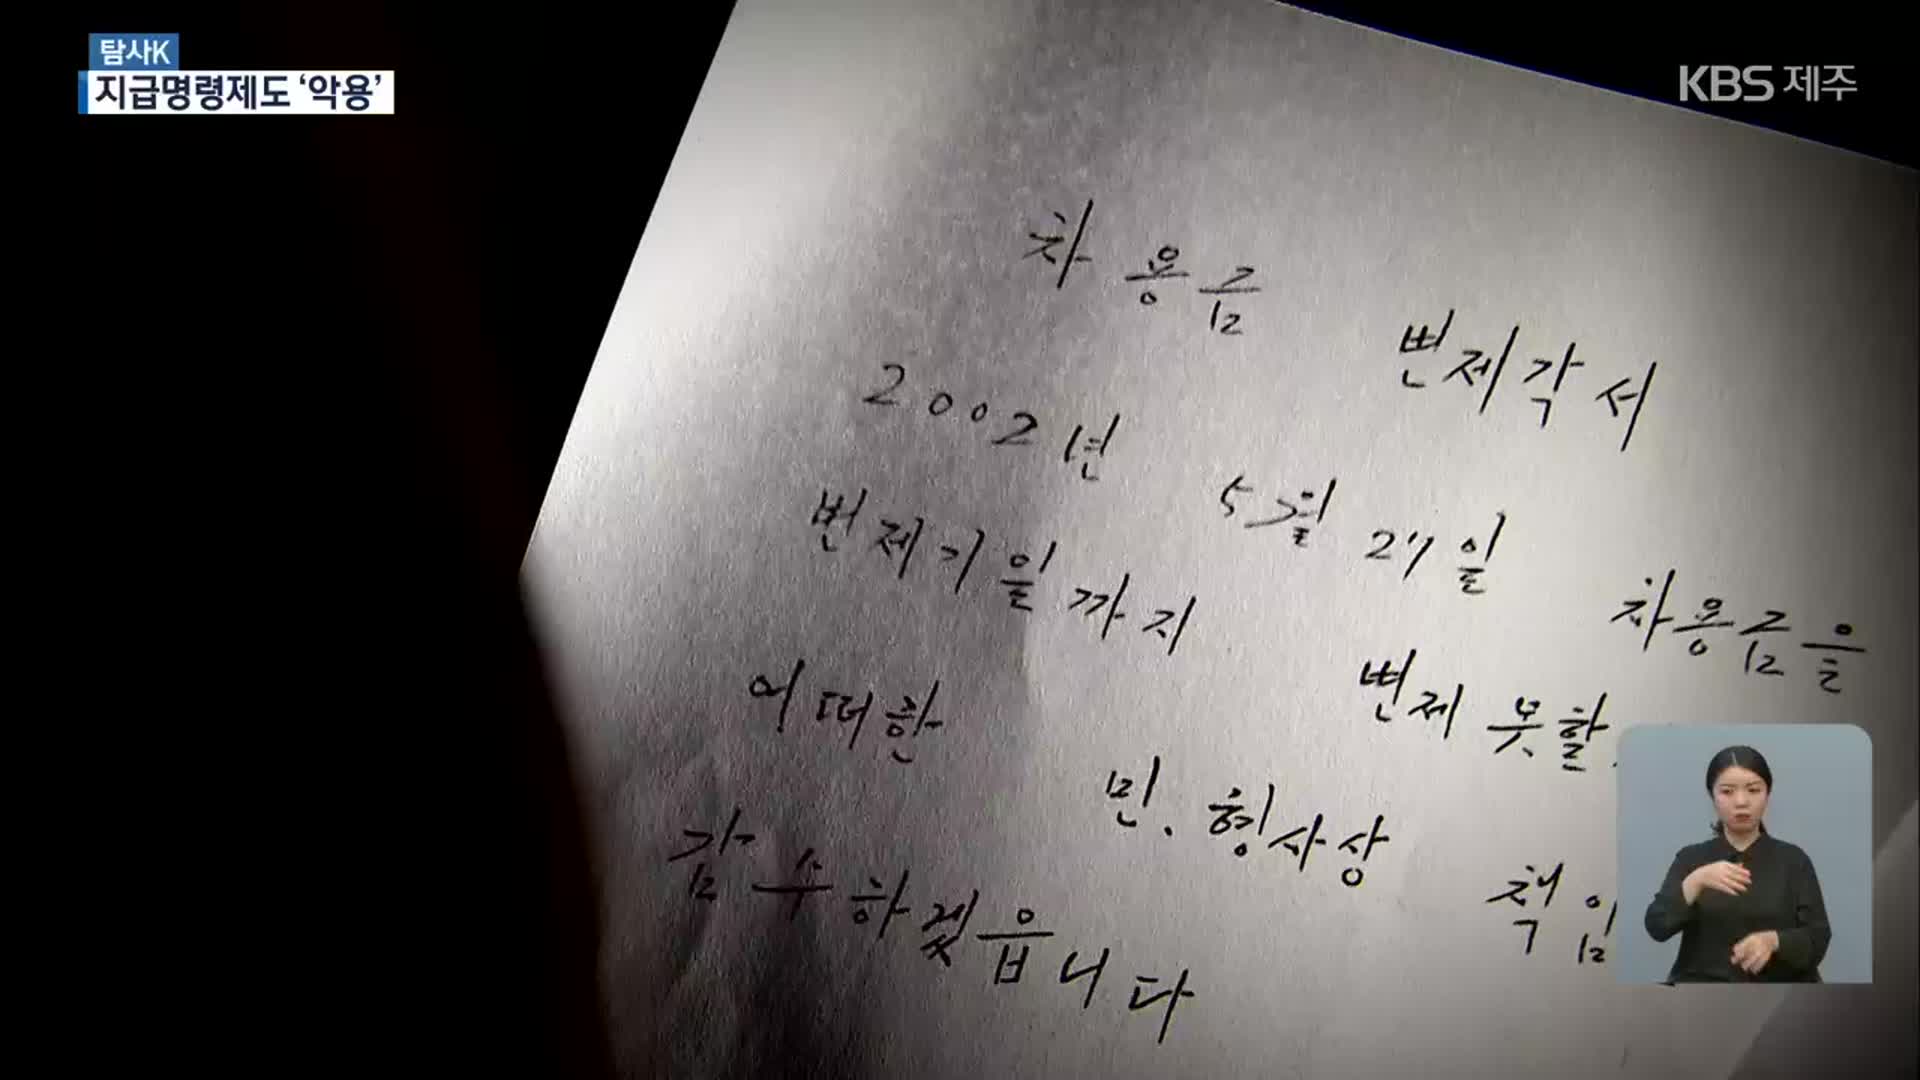 탐사K
지급명령제도 ‘악용’
KBS 제주
차용금 변제각서
2002년 5월 27일 차용금을
변제기일까지 변제 못할
어떠한 민.형사상 책임
감수하겠읍니다